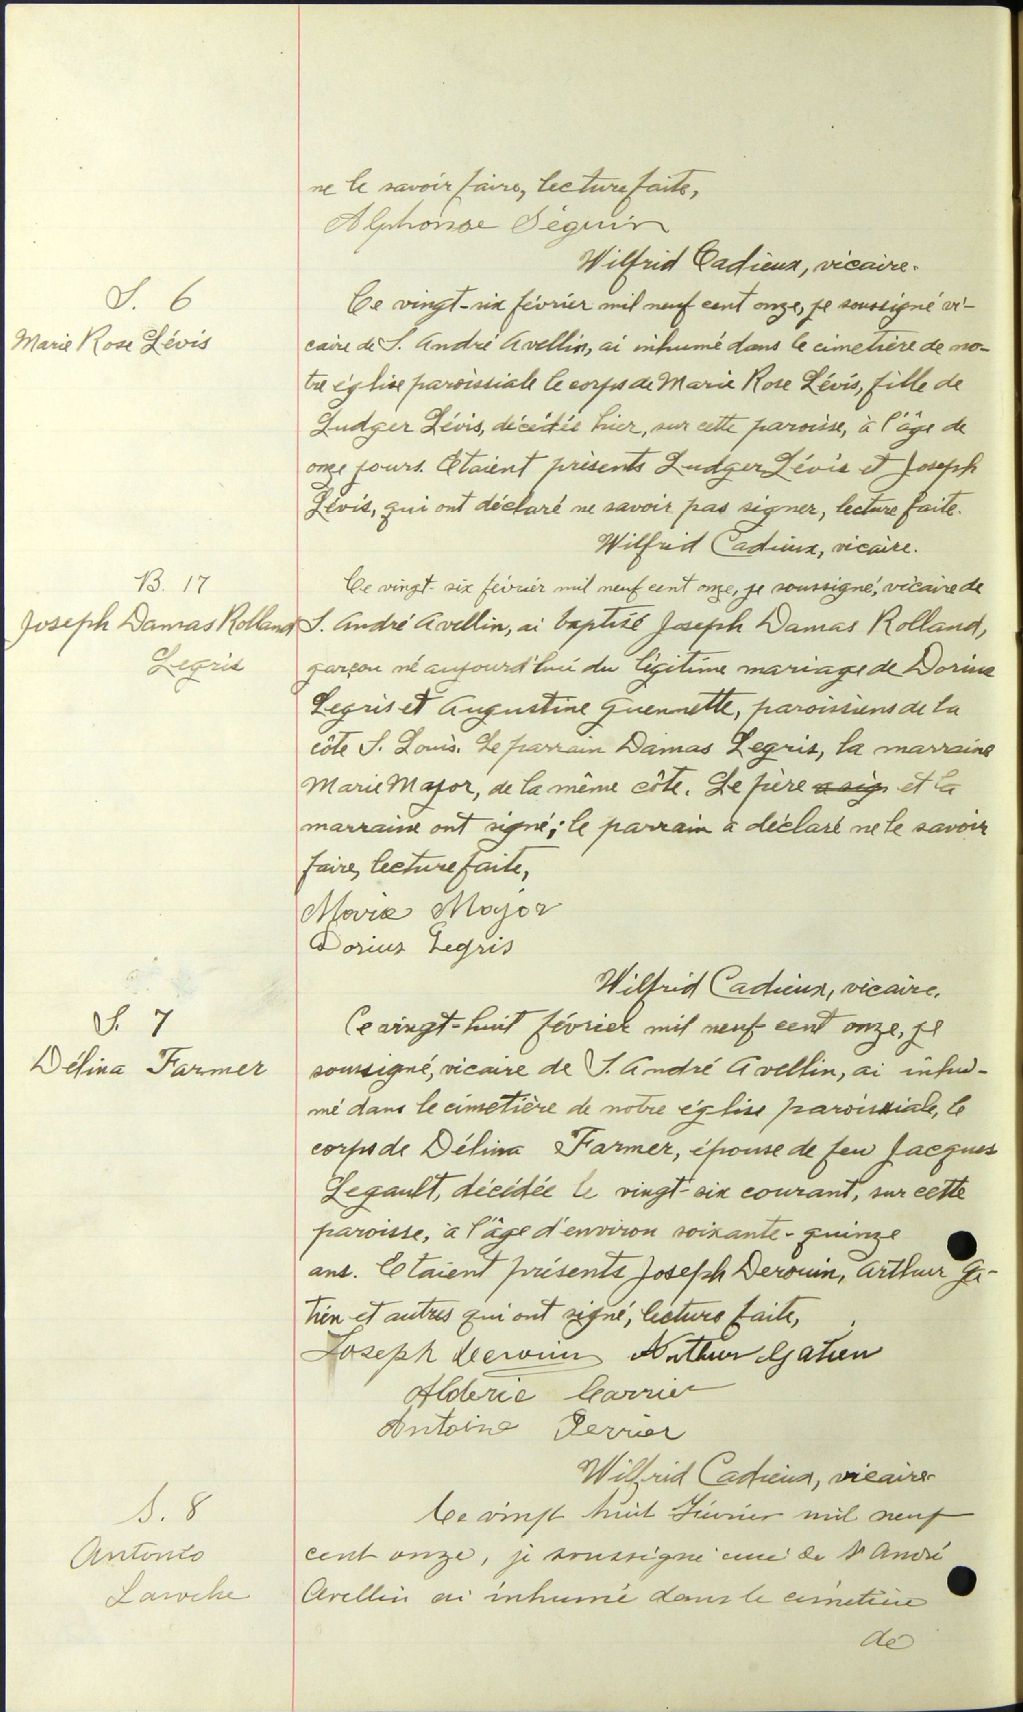 ne le savoir faire, lecture faite,
Alphonse Séguin
Wilfrid Cadieux, vicaire.
S. 6
Marie Rose Lévis
Ce vingt-six février mil neuf cent onze, je soussigné vi-
caire de S. André Avellin, ai inhumé dans le cimetière de no-
tre église paroissiale le corps de Marie Rose Lévis, fille de
Ludger Lévis, décédée hier, sur cette paroisse, à l'âge de
onze jours. Etaient présents Ludger Lévis et Joseph
Lévis, qui ont déclaré ne savoir pas signer, lecture faite.
Wilfrid Cadieux, vicaire.
B. 17
Joseph Damas Rolland
Legris
Ce vingt-six février mil neuf cent onze, je soussigné, vicaire de
S. André Avellin, ai baptisé Joseph Damas Rolland,
garçon né aujourd'hui du légitime mariage de Dorius
Legris et Augustine Guennette, paroissiens de la
côte S. Louis. Le parrain Damas Legris, la marraine
Marie Major, de la même côte. Le père a sig et la
marraine ont signé; le parrain a déclaré ne le savoir
faire, lecture faite,
Marie Major
Dorius Legris
Wilfrid Cadieux, vicaire.
S. 7
Délina Farmer
Ce vingt-huit février mil neuf cent onze, je
soussigné, vicaire de S. André Avellin, ai inhu-
mé dans le cimetière de notre église paroissiale, le
corps de Délina Farmer, épouse de feu Jacques
Legault, décédée le vingt-six courant, sur cette
paroisse, à l'âge d'environ soixante-quinze
ans. Etaient présents Joseph Derouin, Arthur Ga-
tien et autres qui ont signé, lecture faite,
Joseph Derouin Arthur Gatien
Alderic Carrier
Antoine Perrier
Wilfrid Cadieux, vicaire.
S. 8
Antonio
Laroche
Ce vingt huit Février mil neuf
cent onze, je soussigné curé de St André
Avellin ai inhumé dans le cimetière
de